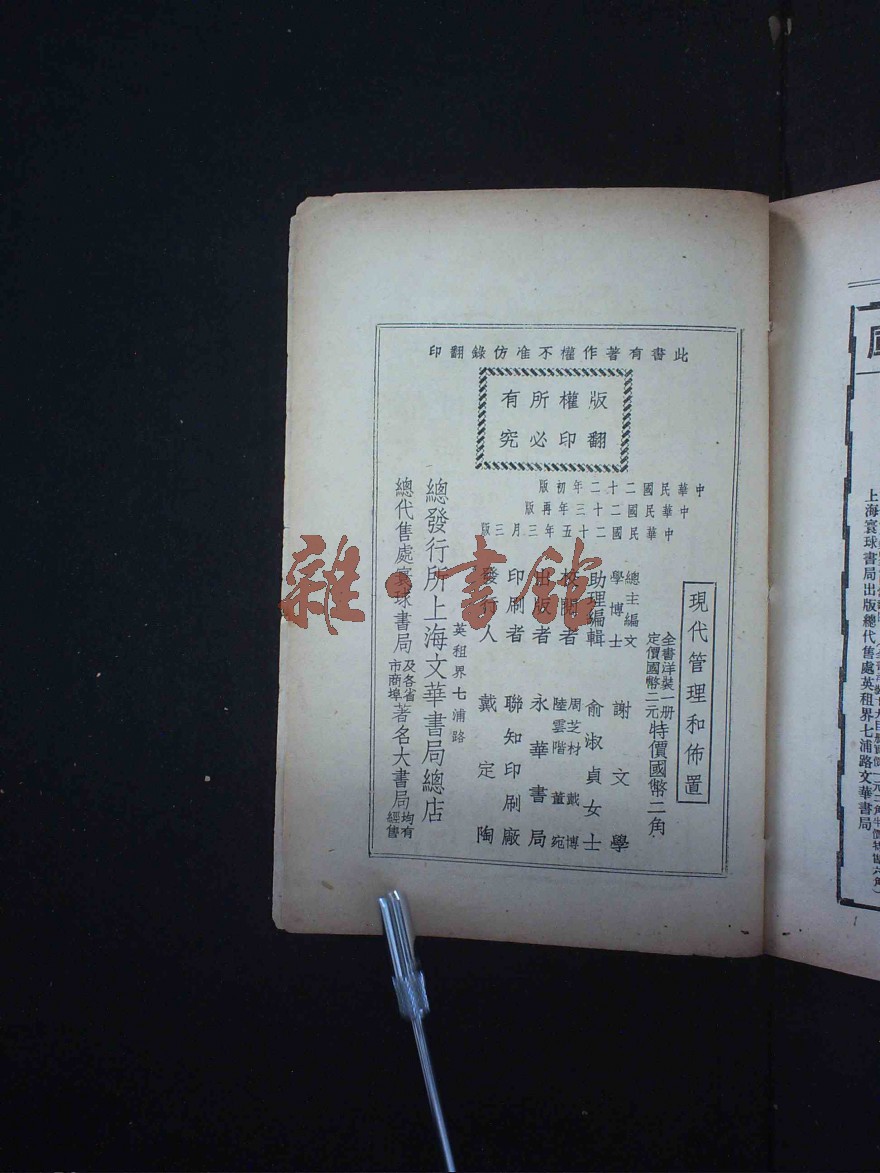 此書有著作權不准仿錄翻印
版權所有
翻印必究
中華民國二十二年初版
中華民國二十三年再版
中華民國二十五年三月三版
現代管理和佈置
全書洋裝一册
定價國幣二元
特價國幣二角
總主編文
學博士
謝文學
助理編輯 俞淑貞女士
校閱者
周芝材 戴博
陸雲階 董宛
出版者 永華書局
印刷者 聯知印刷廠
發行人 戴定陶
英租界七浦路
總發行所上海文華書局總店
總代售處寰球書局
及各省
市商埠
著名大書局
均有
經售
上海寰球書局出版總代售處英租界七浦路文華書局
雜·書館